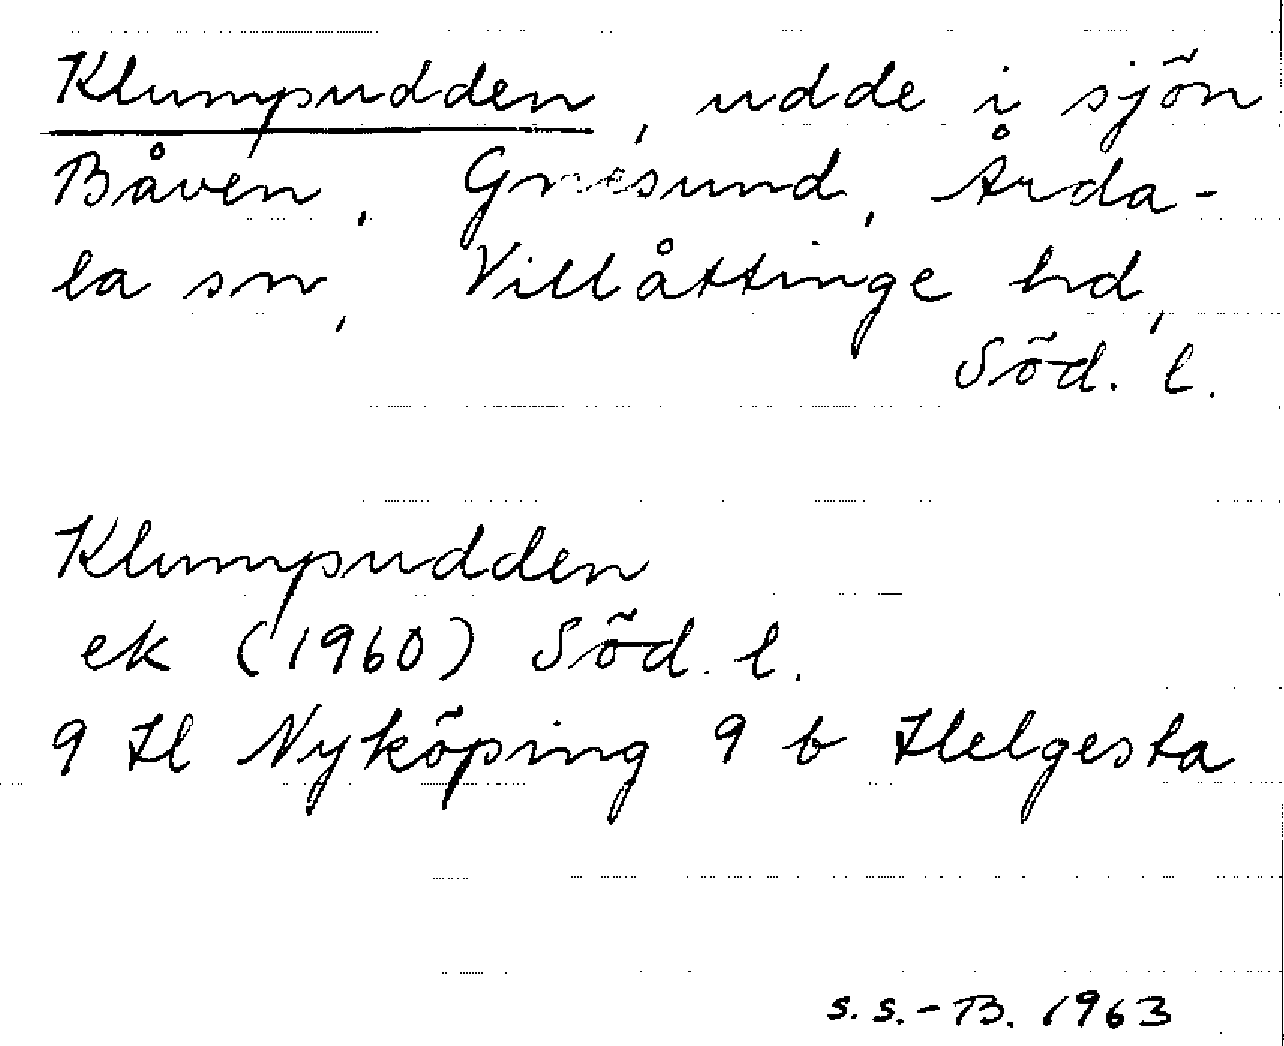 Klumpudden, udde i sjön
Båven, Gnesund, Årda-
la sn, Villåttinge hd,
Söd. l.
Klumpudden
ek (1960) Söd. l.
9 H Nyköping 9 b Helgesta
S. S.-B. 1963